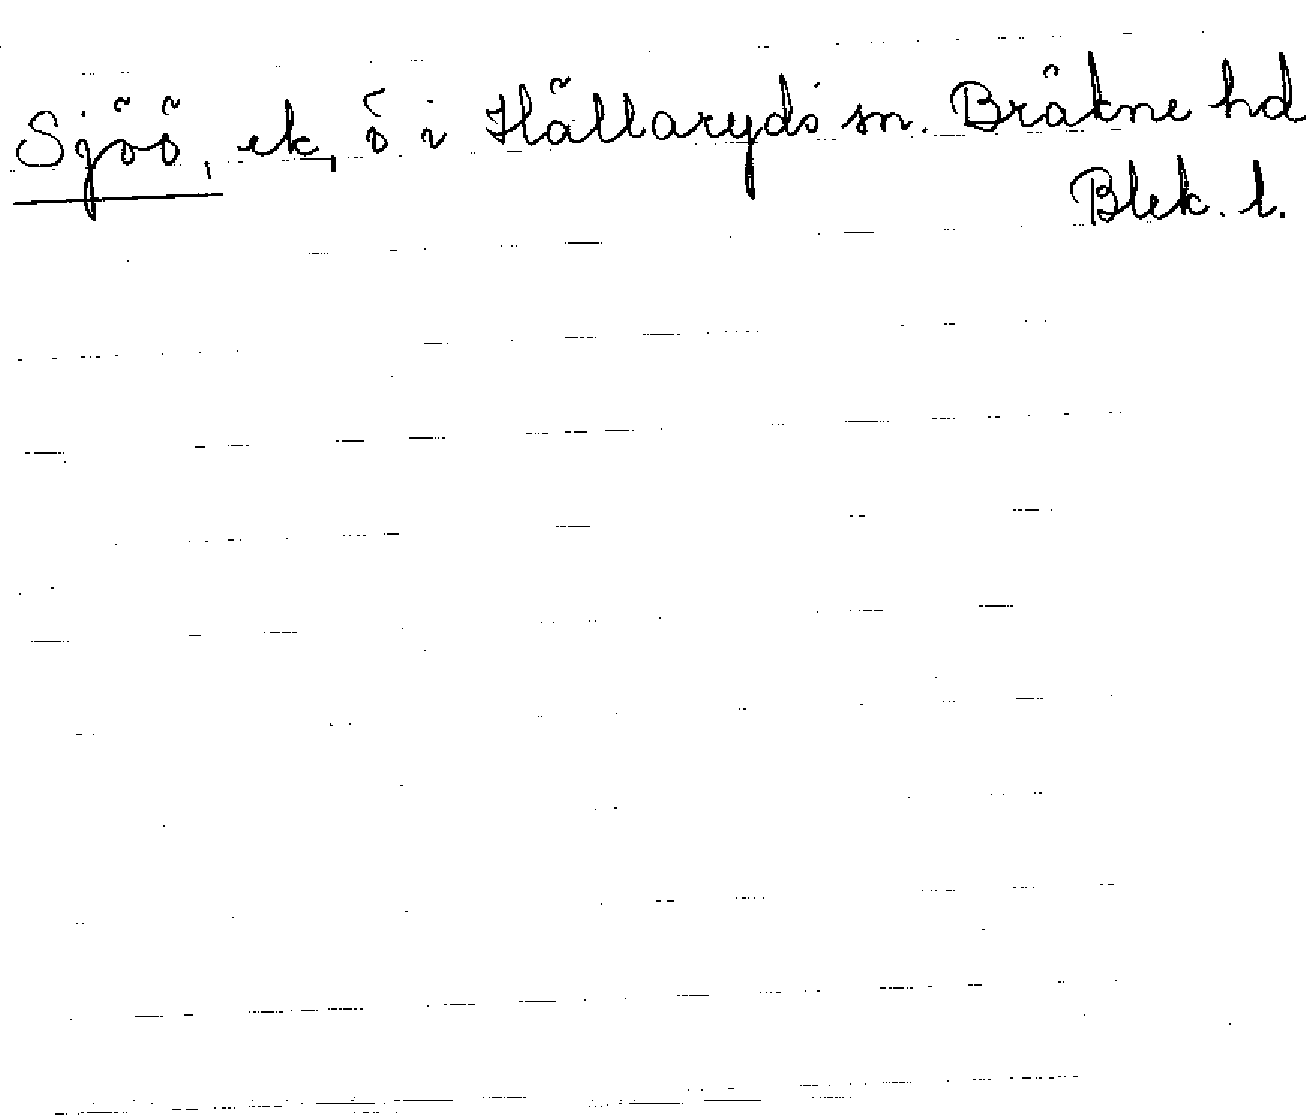 Sjöö, ek, ö i Hällaryds sn. Bräkne hd
Blek. l.